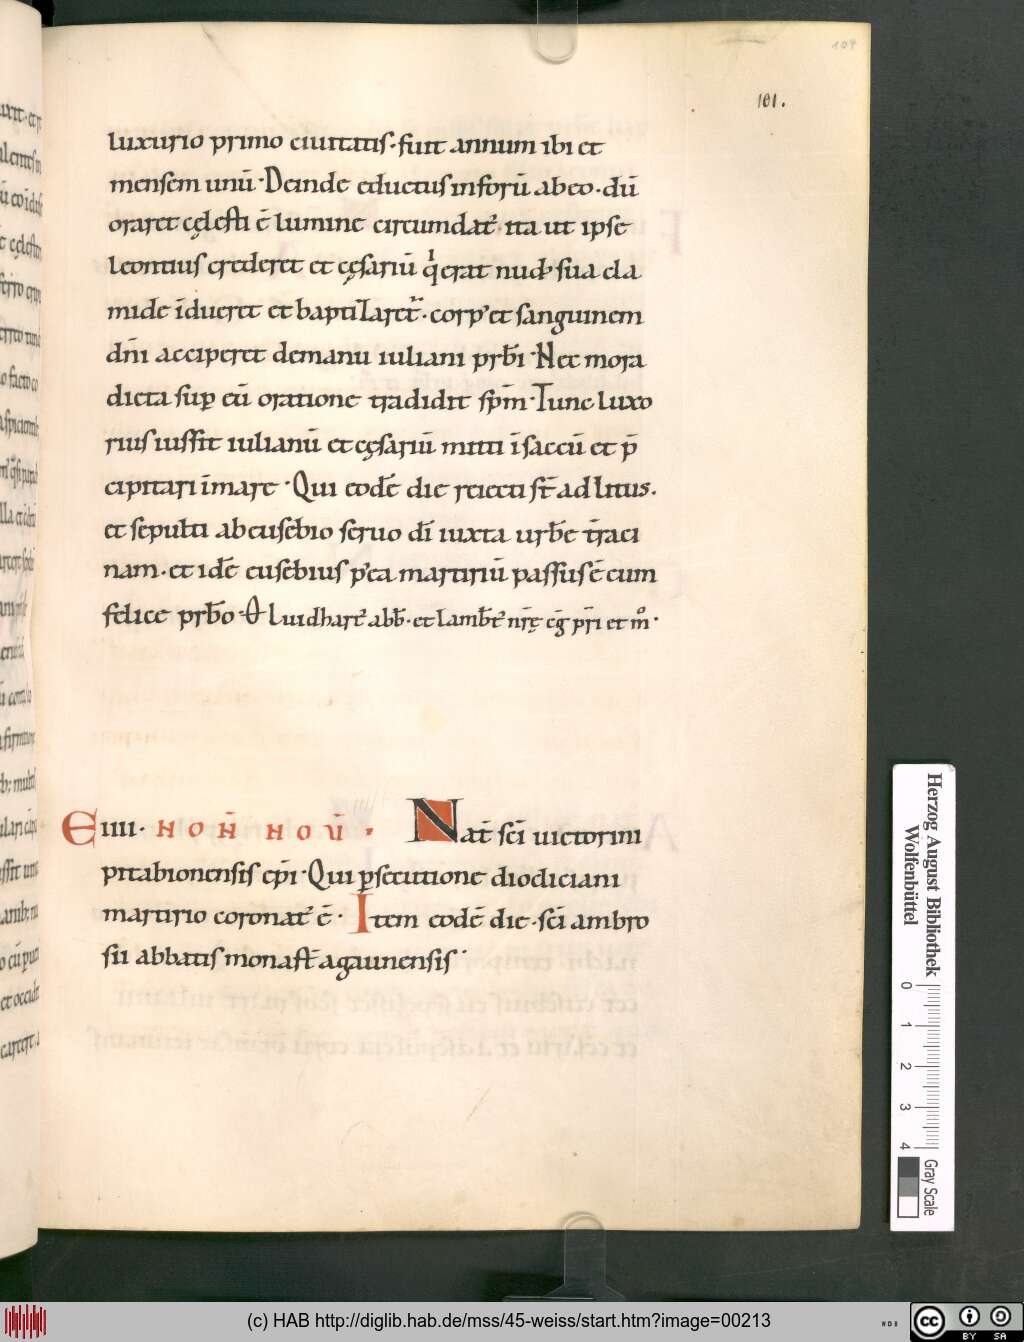 104
101.
luxurio primo ciuitatis· fuit annum ibi et
mensem unū· Deinde eductus inforū abeo· dū
oraret cęlesti ē lumine circumdat᷒ ita ut ipse
leontius crederet et cęsariū q erat nud᷒ sua cla
mide īdueret et baptizaret᷒· corp᷒ et sanguinem
dn̄i acciperet demanu iuliani prb̄i· Nec mora
dicta sup eū oratione tradidit sp̄m· Tunc luxo
rius iussit iulianū et cęsariū mitti īsaccū et p̄
cipitari īmare· Qui eodē die reiecti st̄ ad litus·
et sepulti abeusebio seruo dī iuxta urbē t̄raci
nam· et idē eusebius p᷒ea martiriū passus ē cum
felice prb̄o· luidhare᷒ abb̄· et lamb̄t᷒ nr̄ę cḡ pr̄i et m̊·
Eiiii· NON̄ NOU̅· Nat̄ sc̄i uictorini
pitabionensis ep̄i· Qui psecutione diodiciani
martirio coronat᷒ ē· Item eodē die· sc̄i ambro
sii abbatis monast̄ agaunensis·
Herzog August Bibliothek
Wolfenbüttel
0 1 2 3 4
Gray Scale
(c) HAB http://diglib.hab.de/mss/45-weiss/start.htm?image=00213
cc BY SA